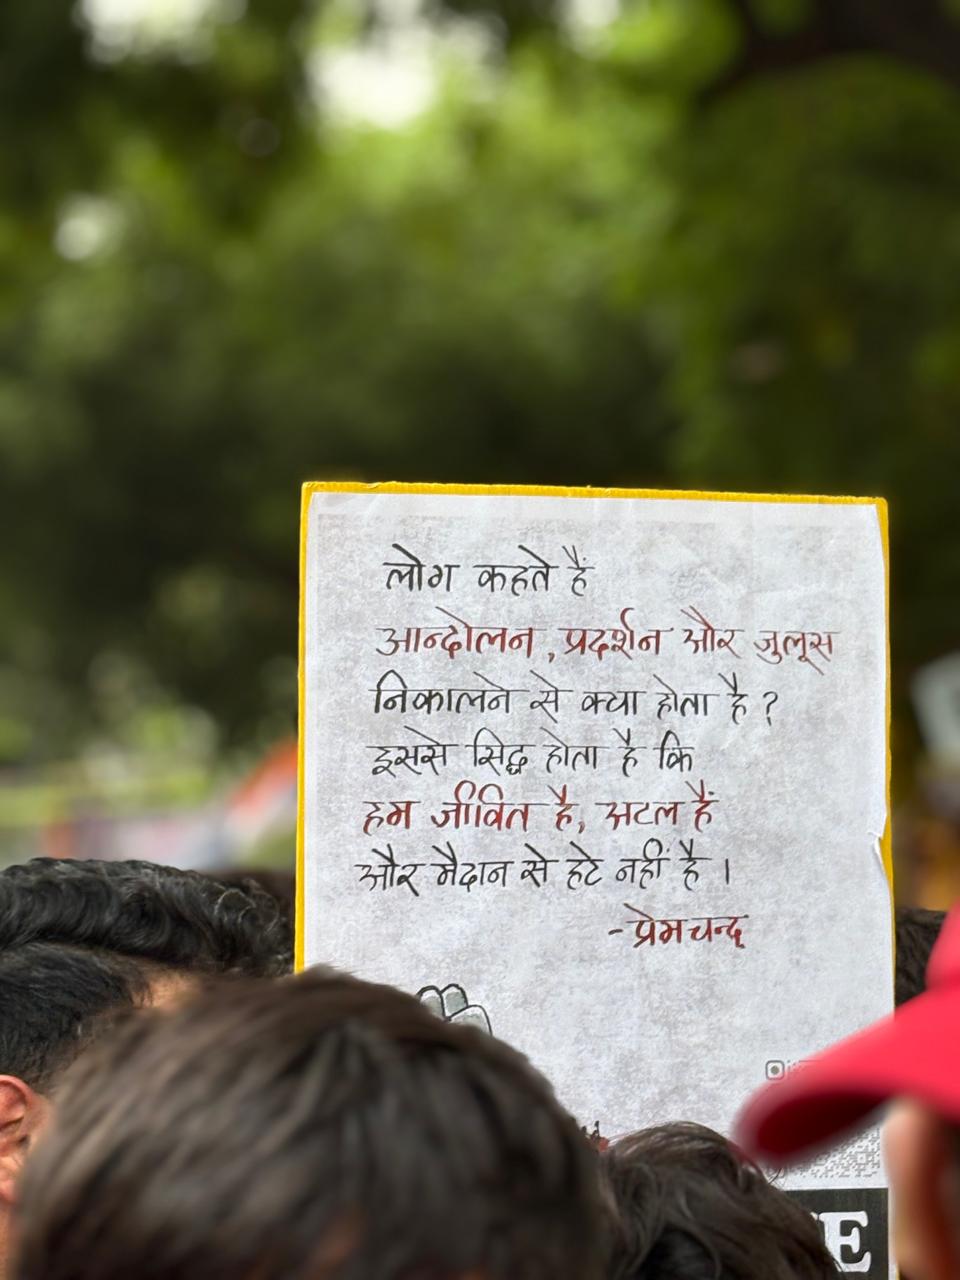 लोग कहते हैं
आन्दोलन, प्रदर्शन और जुलूस
निकालने से क्या होता है ?
इससे सिद्ध होता है कि
हम जीवित है, अटल हैं
और मैदान से हटे नहीं है ।
-प्रेमचन्द